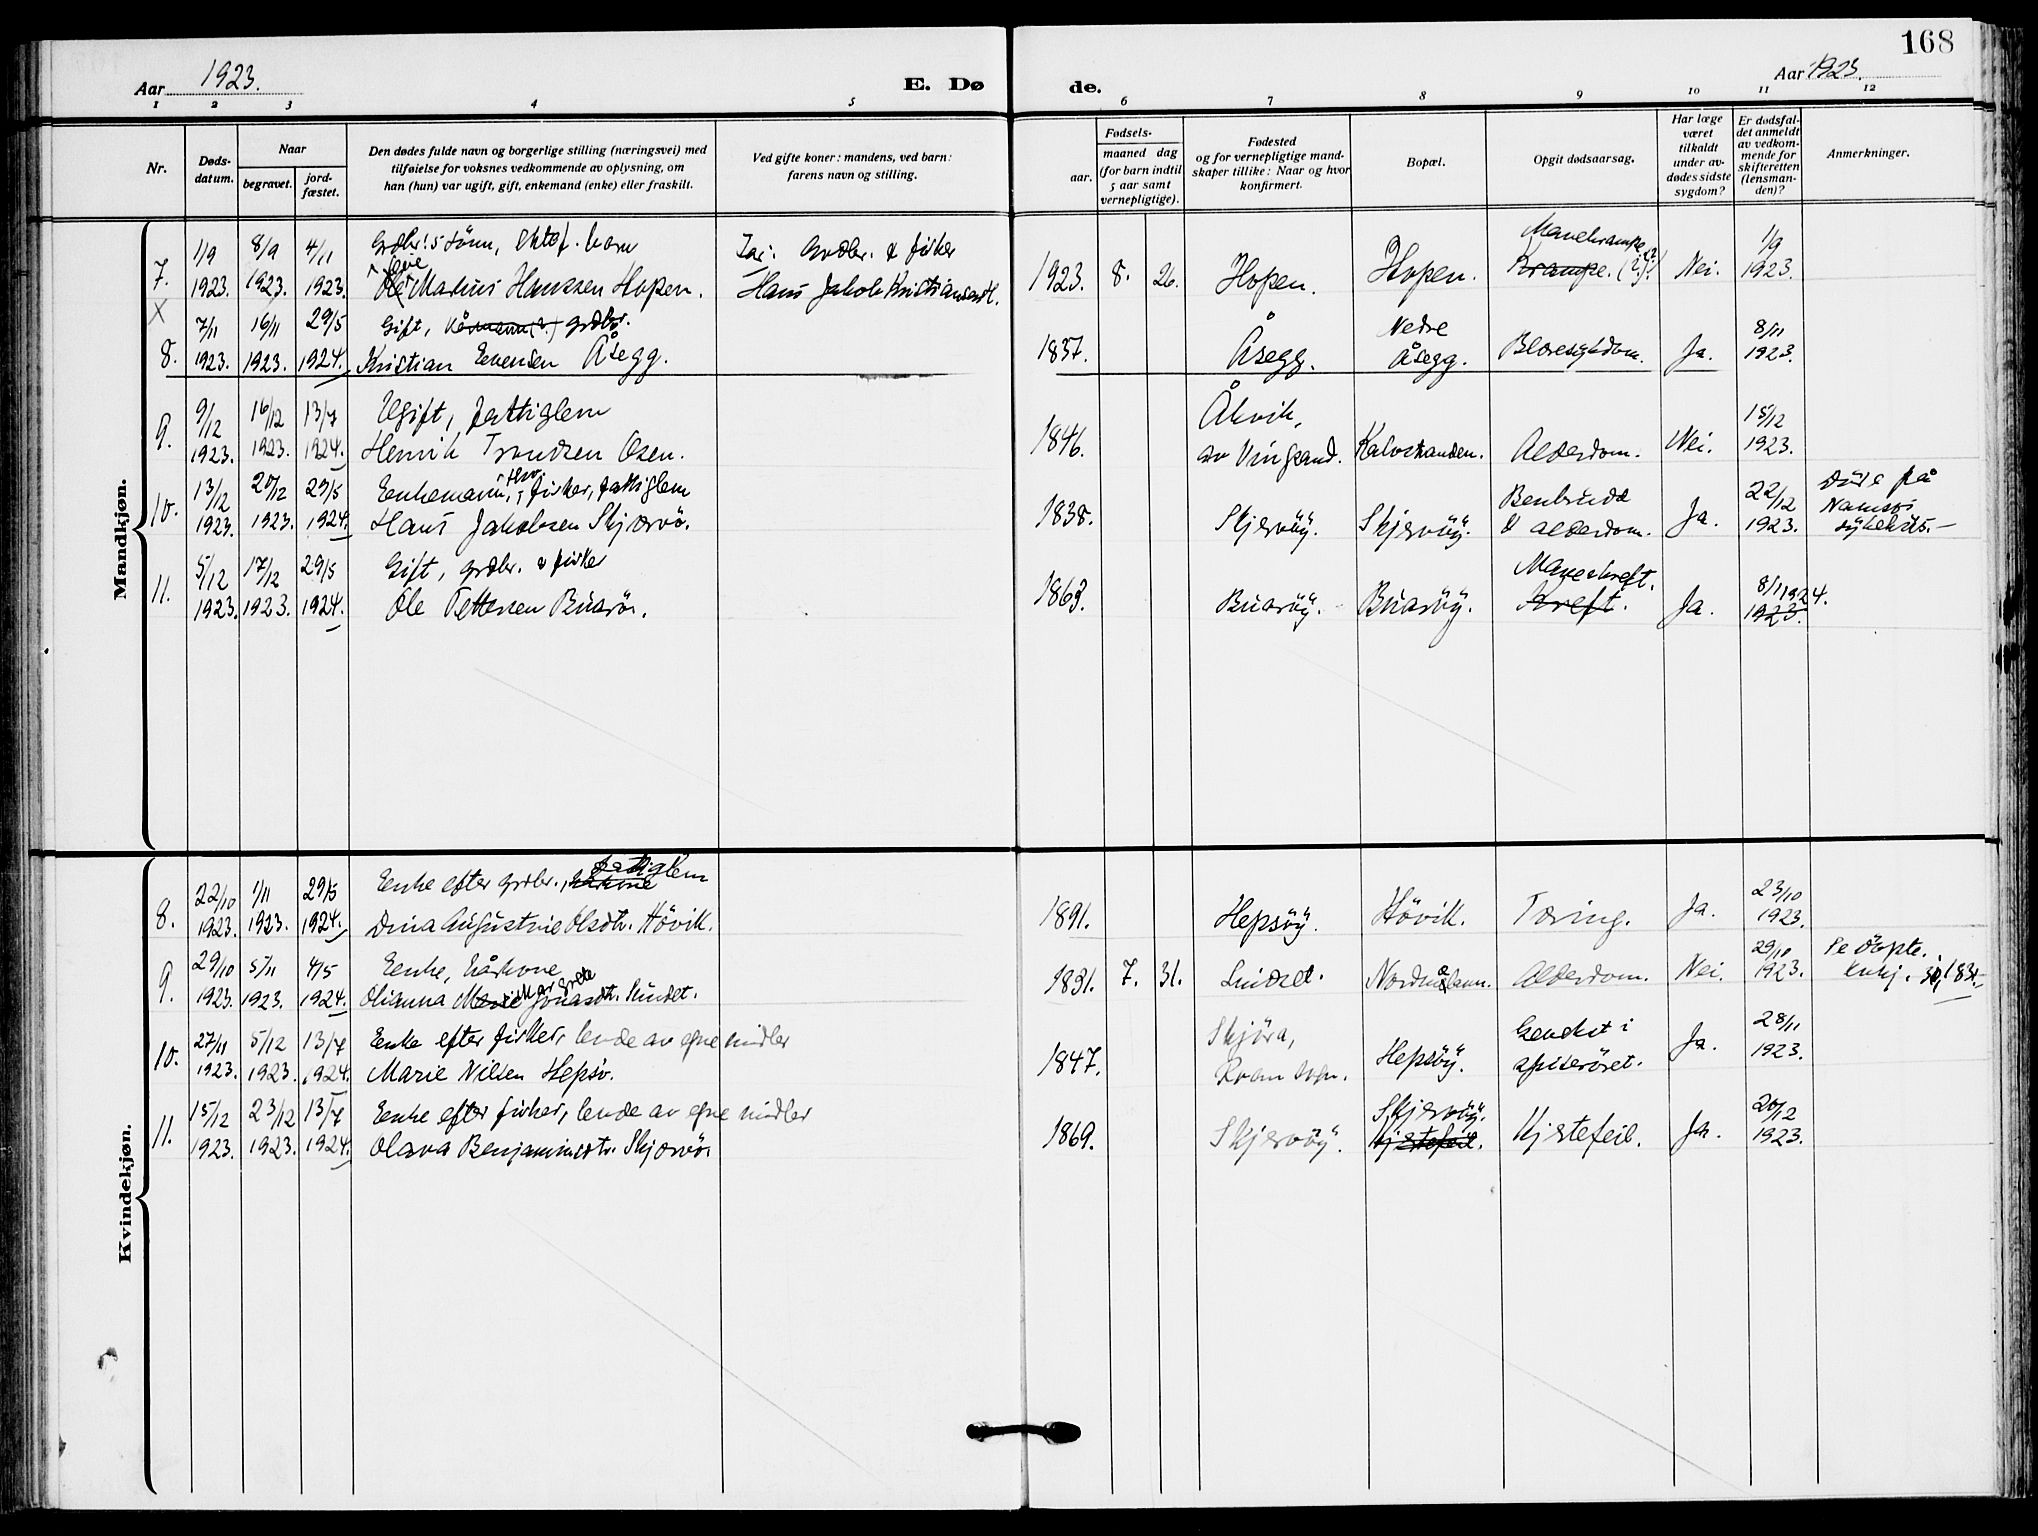 168
Aar 1923.
E. Dø
de.
Aar 1923.
1 2 3 4 5 6 7 8 9 10 11 12
Nr.
Døds-
datum.
Naar
begravet.
jord-
fæstet.
Den dødes fulde navn og borgerlige stilling (næringsvei) med
tilføielse for voksnes vedkommende av oplysning, om
han (hun) var ugift, gift, enkemand (enke) eller fraskilt.
Ved gifte koner: mandens, ved barn:
farens navn og stilling.
Fødsels-
aar.
maaned dag
(for barn indtil
5 aar samt
vernepligtige).
Fødested
og for vernepligtige mand-
skaper tillike: Naar og hvor
konfirmert.
Bopæl.
Opgit dødsaarsag.
Har læge
været
tilkaldt
under av-
dødes sidste
sygdom?
Er dødsfal-
det anmeldt
av vedkom-
mende for
skifteretten
(lensman-
den)?
Anmerkninger.
Mandkjøn.
1/9 8/9 4/11 Grdbr.s sönn, ektef. barn Far: Grdbr. & fisker Mavekrampe 1/9
7. 1923. 1923. 1923. Marius Hanssen Hopen. Hans Jakob Kristiansen 1923. 8. 26. Hopen. Hopen. Krampe. (?)! Nei. 1923.
X
7/11 16/11 29/5 Gift, grdbr. Nedre 8/11
8. 1923. 1923. 1924. Kristian Eevensen Åsegg. 1837. Åsegg. Åsegg. Blæresykdom. Ja. 1923.
9/12 16/12 13/7 Ugift, fattiglem Åkvik, 15/12
9. 1923. 1923. 1924. Henrik Trondsen Osen. 1846. av Vingsand. Kalvstranden. Alderdom. Nei. 1923.
13/12 20/12 29/5 Eenkemann, fhv. fisker, fattiglem Benbrudd 22/12 Döde på
10. 1923. 1923. 1924. Hans Jakobsen Skjærvö. 1838. Skjervöy. Skjervöy. & alderdom. Ja. 1923. Namsos
sykehus.–
5/12 17/12 29/5 Gift, grdbr. & fisker Mavekreft. 8/1 1924.
11. 1923. 1923. 1924. Ole Pettersen Buarö. 1863. Buaröy. Buaröy. Kreft. Ja. 1923.
Kvindekjøn.
22/10 1/11 29/5 Eenke efter grdbr., fattiglem 23/10
8. 1923. 1923. 1924. Dina Augustine Olsdtr. Hövik. 1891. Hepsöy. Hövik. Tæring. Ja. 1923.
29/10 5/11 4/5 Eenke, kårkone 29/10 Se döpte.
9. 1923. 1923. 1924. Olianna Marie Margrete Jonasdtr. Sundet. 1831. 7. 31. Sundet. Alderdom. Nei. 1923.
27/11 5/12 13/7 Eenke efter fisker, levde av egne midler Skjöra, Svulst i 28/11
10. 1923. 1923. 1924. Marie Nilsen Hepsö. 1847. Hepsöy. spiseröret. Ja. 1923.
15/12 23/12 13/7 Eenke efter fisker, levde av egne midler Skjervöy. 20/12
11. 1923. 1923. 1924. Olava Benjaminsdtr. Skjærvö. 1869. Skjervöy. Hjertefeil. Hjertefeil. Ja. 1923.